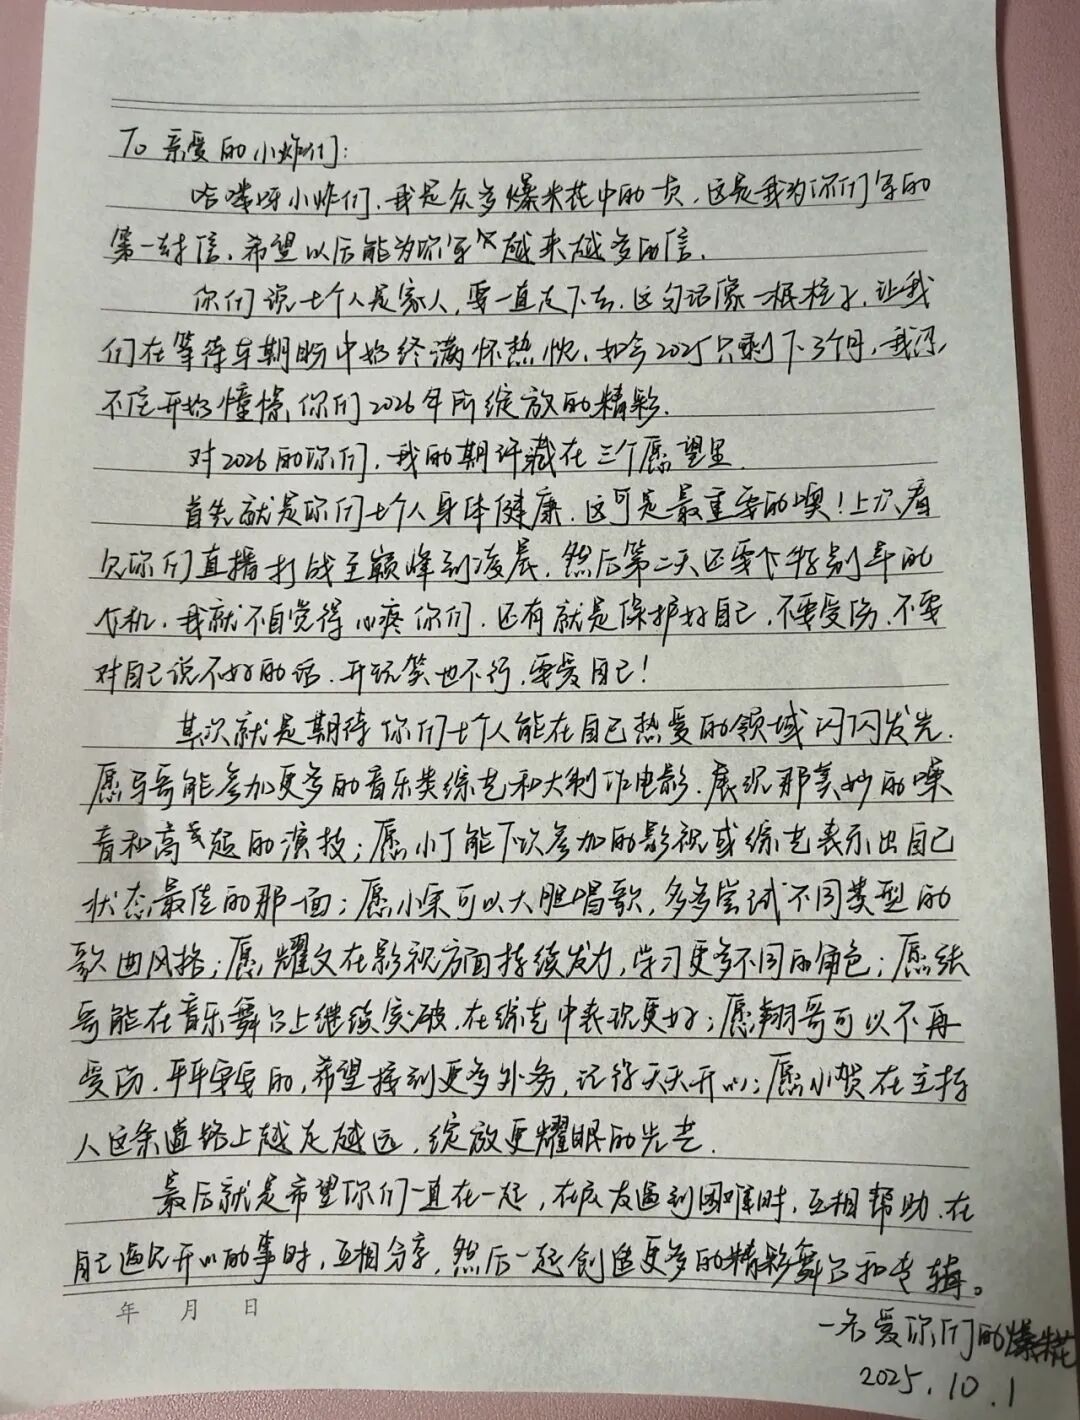 To 亲爱的小炸们:
哈喽呀小炸们,我是众多爆米花中的一员,这是我为你们写的
第一封信,希望以后能为你写越来越多的信.
你们说七个人是家人,要一直走下去.这句话像一根柱子,让我
们在等待与期盼中始终满怀热忱.如今2025只剩下3个月,我忍
不住开始憧憬你们2026年所绽放的精彩.
对2026的你们,我的期许藏在三个愿望里.
首先就是你们七个人身体健康.这可是最重要的噢!上次看
见你们直播打战至巅峰到凌晨,然后第二天还要飞特别早的
飞机,我就不自觉得心疼你们.还有就是保护好自己,不要受伤,不要
对自己说不好的话.开玩笑也不行,要爱自己!
其次就是期待你们七个人能在自己热爱的领域闪闪发光.
愿马哥能参加更多的音乐类综艺和大制作电影.展现那美妙的嗓
音和高超的演技;愿小丁能下次参加的影视或综艺表示出自己
状态最佳的那一面;愿小宋可以大胆唱歌,多多尝试不同类型的
歌曲风格;愿耀文在影视方面持续发力,学习更多不同的角色;愿张
哥能在音乐舞台上继续突破.在综艺中表现更好;愿翔哥可以不再
受伤.平平安安的,希望接到更多外务,记得天天开心;愿小贺在主持
人这条道路上越走越远,绽放更耀眼的光芒.
最后就是希望你们一直在一起,在队友遇到困难时,互相帮助.在
自己遇见开心的事时,互相分享,然后一起创造更多的精彩舞台和专辑。
年 月 日
一名爱你们的爆米花
2025.10.1